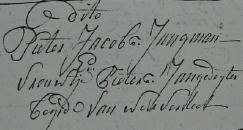 dito
Pieter Jacobs Jungman
En
Vrouwtje Pieters Jungedogter
Beijde van